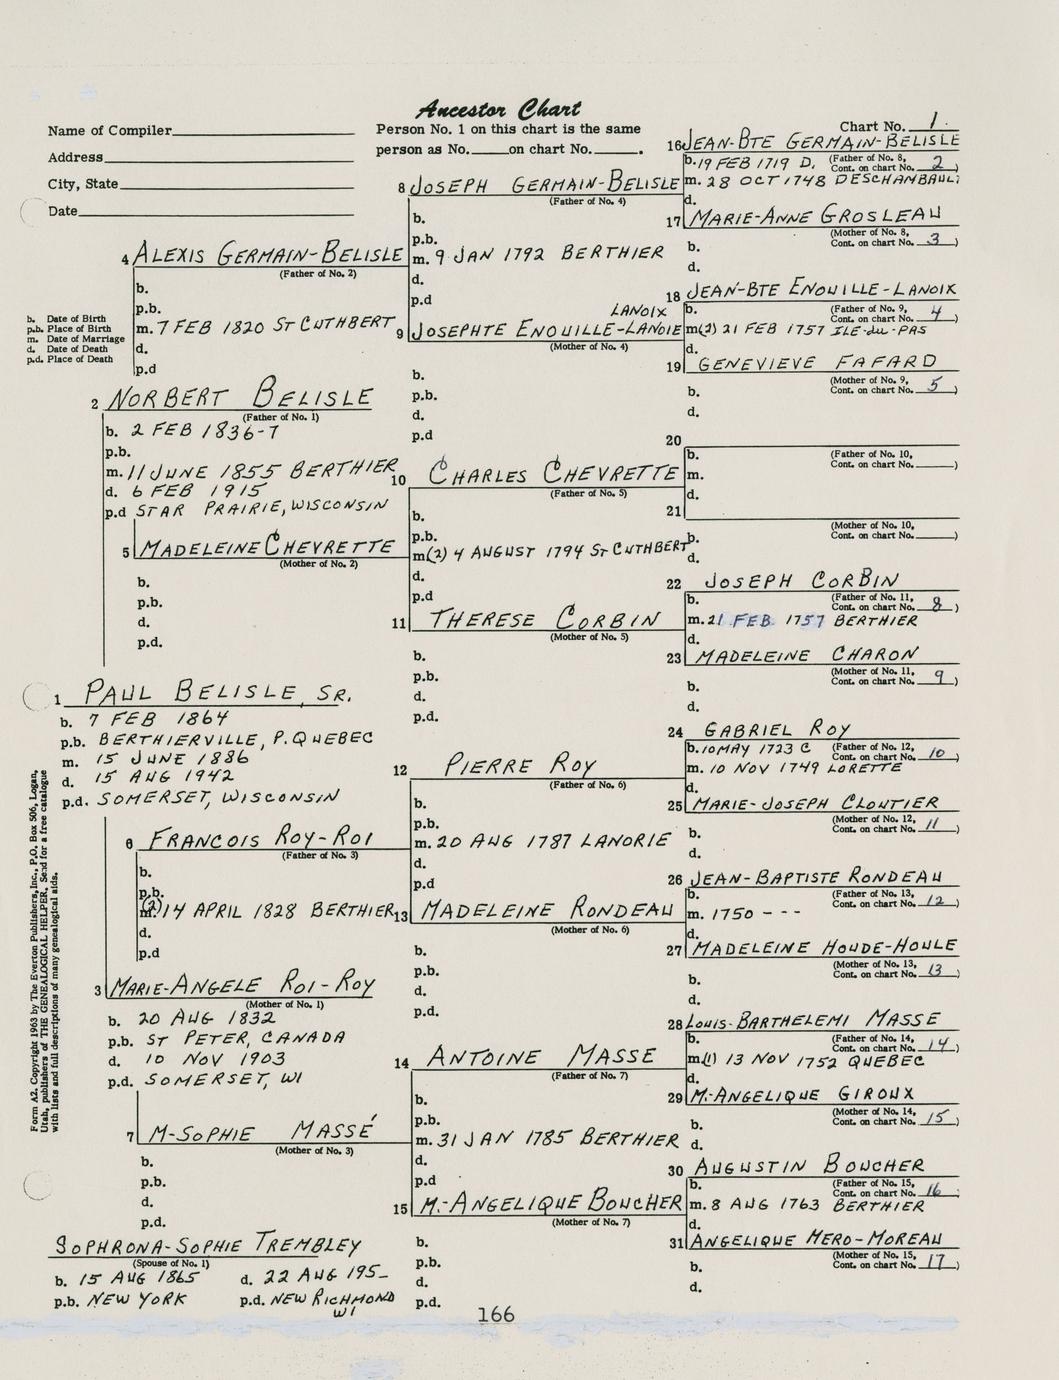 Ancestor Chart
Name of Compiler
Address
City, State
Date
Person No. 1 on this chart is the same
person as No. on chart No. .
Chart No. 1
b. Date of Birth
p.b. Place of Birth
m. Date of Marriage
d. Date of Death
p.d. Place of Death
1 PAUL BELISLE, SR.
b. 7 FEB 1864
p.b. BERTHIERVILLE, P. QUEBEC
m. 15 JUNE 1886
d. 15 AUG 1942
p.d. SOMERSET, WISCONSIN
2 NORBERT BELISLE
(Father of No. 1)
b. 2 FEB 1836-7
p.b.
m. 11 JUNE 1855 BERTHIER
d. 6 FEB 1915
p.d STAR PRAIRIE, WISCONSIN
3 MARIE-ANGELE ROI-ROY
(Mother of No. 1)
b. 20 AUG 1832
p.b. ST PETER, CANADA
d. 10 NOV 1903
p.d. SOMERSET, WI
4 ALEXIS GERMAIN-BELISLE
(Father of No. 2)
b.
p.b.
m. 7 FEB 1820 ST CUTHBERT
d.
p.d
5 MADELEINE CHEVRETTE
(Mother of No. 2)
b.
p.b.
d.
p.d.
6 FRANCOIS ROY-ROI
(Father of No. 3)
b.
p.b.
(2)
m. 14 APRIL 1828 BERTHIER
d.
p.d
7 M-SOPHIE MASSÉ
(Mother of No. 3)
b.
p.b.
d.
p.d.
SOPHRONA-SOPHIE TREMBLEY
(Spouse of No. 1)
b. 15 AUG 1865 d. 22 AUG 195_
p.b. NEW YORK p.d. NEW RICHMOND
WI
8 JOSEPH GERMAIN-BELISLE
(Father of No. 4)
b.
p.b.
m. 9 JAN 1792 BERTHIER
d.
p.d
LANOIX
9 JOSEPHTE ENOUILLE-LANOIE
(Mother of No. 4)
b.
p.b.
d.
p.d
10 CHARLES CHEVRETTE
(Father of No. 5)
b.
p.b.
m(2) 4 AUGUST 1794 ST CUTHBERT
d.
p.d
11 THERESE CORBIN
(Mother of No. 5)
b.
p.b.
d.
p.d.
12 PIERRE ROY
(Father of No. 6)
b.
p.b.
m. 20 AUG 1787 LANORIE
d.
p.d
13 MADELEINE RONDEAU
(Mother of No. 6)
b.
p.b.
d.
p.d.
14 ANTOINE MASSE
(Father of No. 7)
b.
p.b.
m. 31 JAN 1785 BERTHIER
d.
p.d
15 M.-ANGELIQUE BOUCHER
(Mother of No. 7)
b.
p.b.
d.
p.d.
16 JEAN-BTE GERMAIN-BELISLE
b. 19 FEB 1719 D. (Father of No. 8,
Cont. on chart No. 2)
m. 28 OCT 1748 DESCHAMBAULT
d.
17 MARIE-ANNE GROSLEAU
(Mother of No. 8,
b. Cont. on chart No. 3)
d.
18 JEAN-BTE ENOUILLE-LANOIX
b. (Father of No. 9,
Cont. on chart No. 4)
m(2) 21 FEB 1757 ILE-du-PAS
d.
19 GENEVIEVE FAFARD
(Mother of No. 9,
b. Cont. on chart No. 5)
d.
20
b. (Father of No. 10,
Cont. on chart No. )
m.
d.
21
(Mother of No. 10,
b. Cont. on chart No. )
d.
22 JOSEPH CORBIN
b. (Father of No. 11,
Cont. on chart No. 8)
m. 21 FEB 1757 BERTHIER
d.
23 MADELEINE CHARON
(Mother of No. 11,
b. Cont. on chart No. 9)
d.
24 GABRIEL ROY
b. 10 MAY 1723 C (Father of No. 12,
Cont. on chart No. 10)
m. 10 NOV 1749 LORETTE
d.
25 MARIE-JOSEPH CLOUTIER
(Mother of No. 12,
b. Cont. on chart No. 11)
d.
26 JEAN-BAPTISTE RONDEAU
b. (Father of No. 13,
Cont. on chart No. 12)
m. 1750 - - -
d.
27 MADELEINE HOUDE-HOULE
(Mother of No. 13,
b. Cont. on chart No. 13)
d.
28 LOUIS-BARTHELEMI MASSE
b. (Father of No. 14,
Cont. on chart No. 14)
m(1) 13 NOV 1752 QUEBEC
d.
29 M.-ANGELIQUE GIROUX
(Mother of No. 14,
b. Cont. on chart No. 15)
d.
30 AUGUSTIN BOUCHER
b. (Father of No. 15,
Cont. on chart No. 16)
m. 8 AUG 1763 BERTHIER
d.
31 ANGELIQUE HERO-MOREAU
(Mother of No. 15,
b. Cont. on chart No. 17)
d.
Form A2. Copyright 1963 by The Everton Publishers, Inc., P.O. Box 506, Logan,
Utah, publishers of THE GENEALOGICAL HELPER. Send for a free catalogue
with lists and full descriptions of many genealogical aids.
166